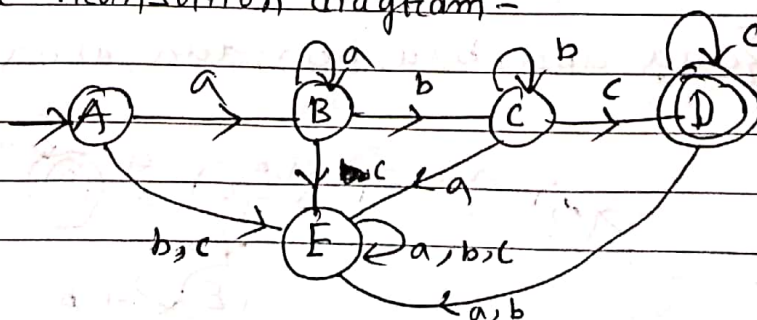 Transition diagram -
a
b
c
a
b
c
A
B
C
D
c
a
b,c
E
a,b,c
a,b